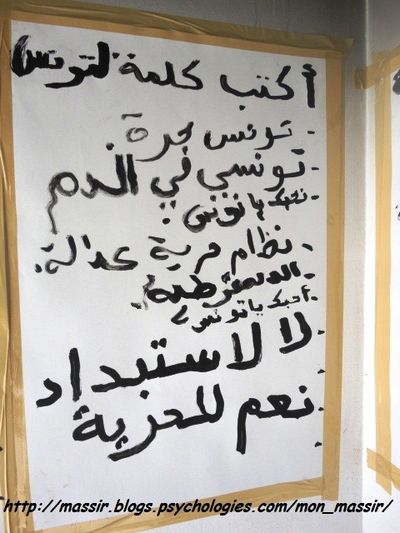 أكتب كلمة لتونس
- تونس حرة
- تونسي في الدم
- نحبك يا تونس.
- نظام حرية عدالة.
- الديمقرطية.
- أحبك يا تونس
لا للاستبداد
نعم للحرية
http://massir.blogs.psychologies.com/mon_massir/